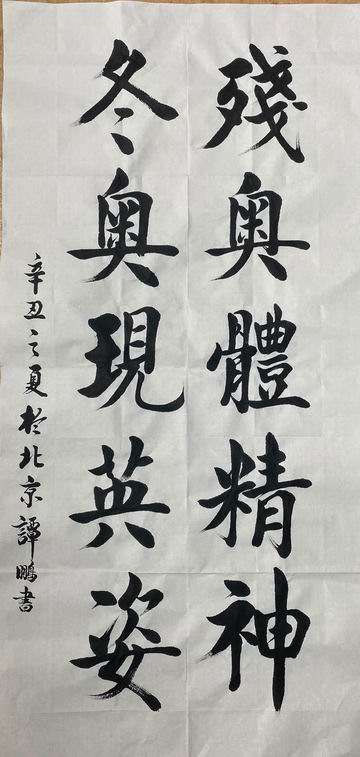 殘奧體精神
冬奧現英姿
辛丑之夏於北京譚鵬書